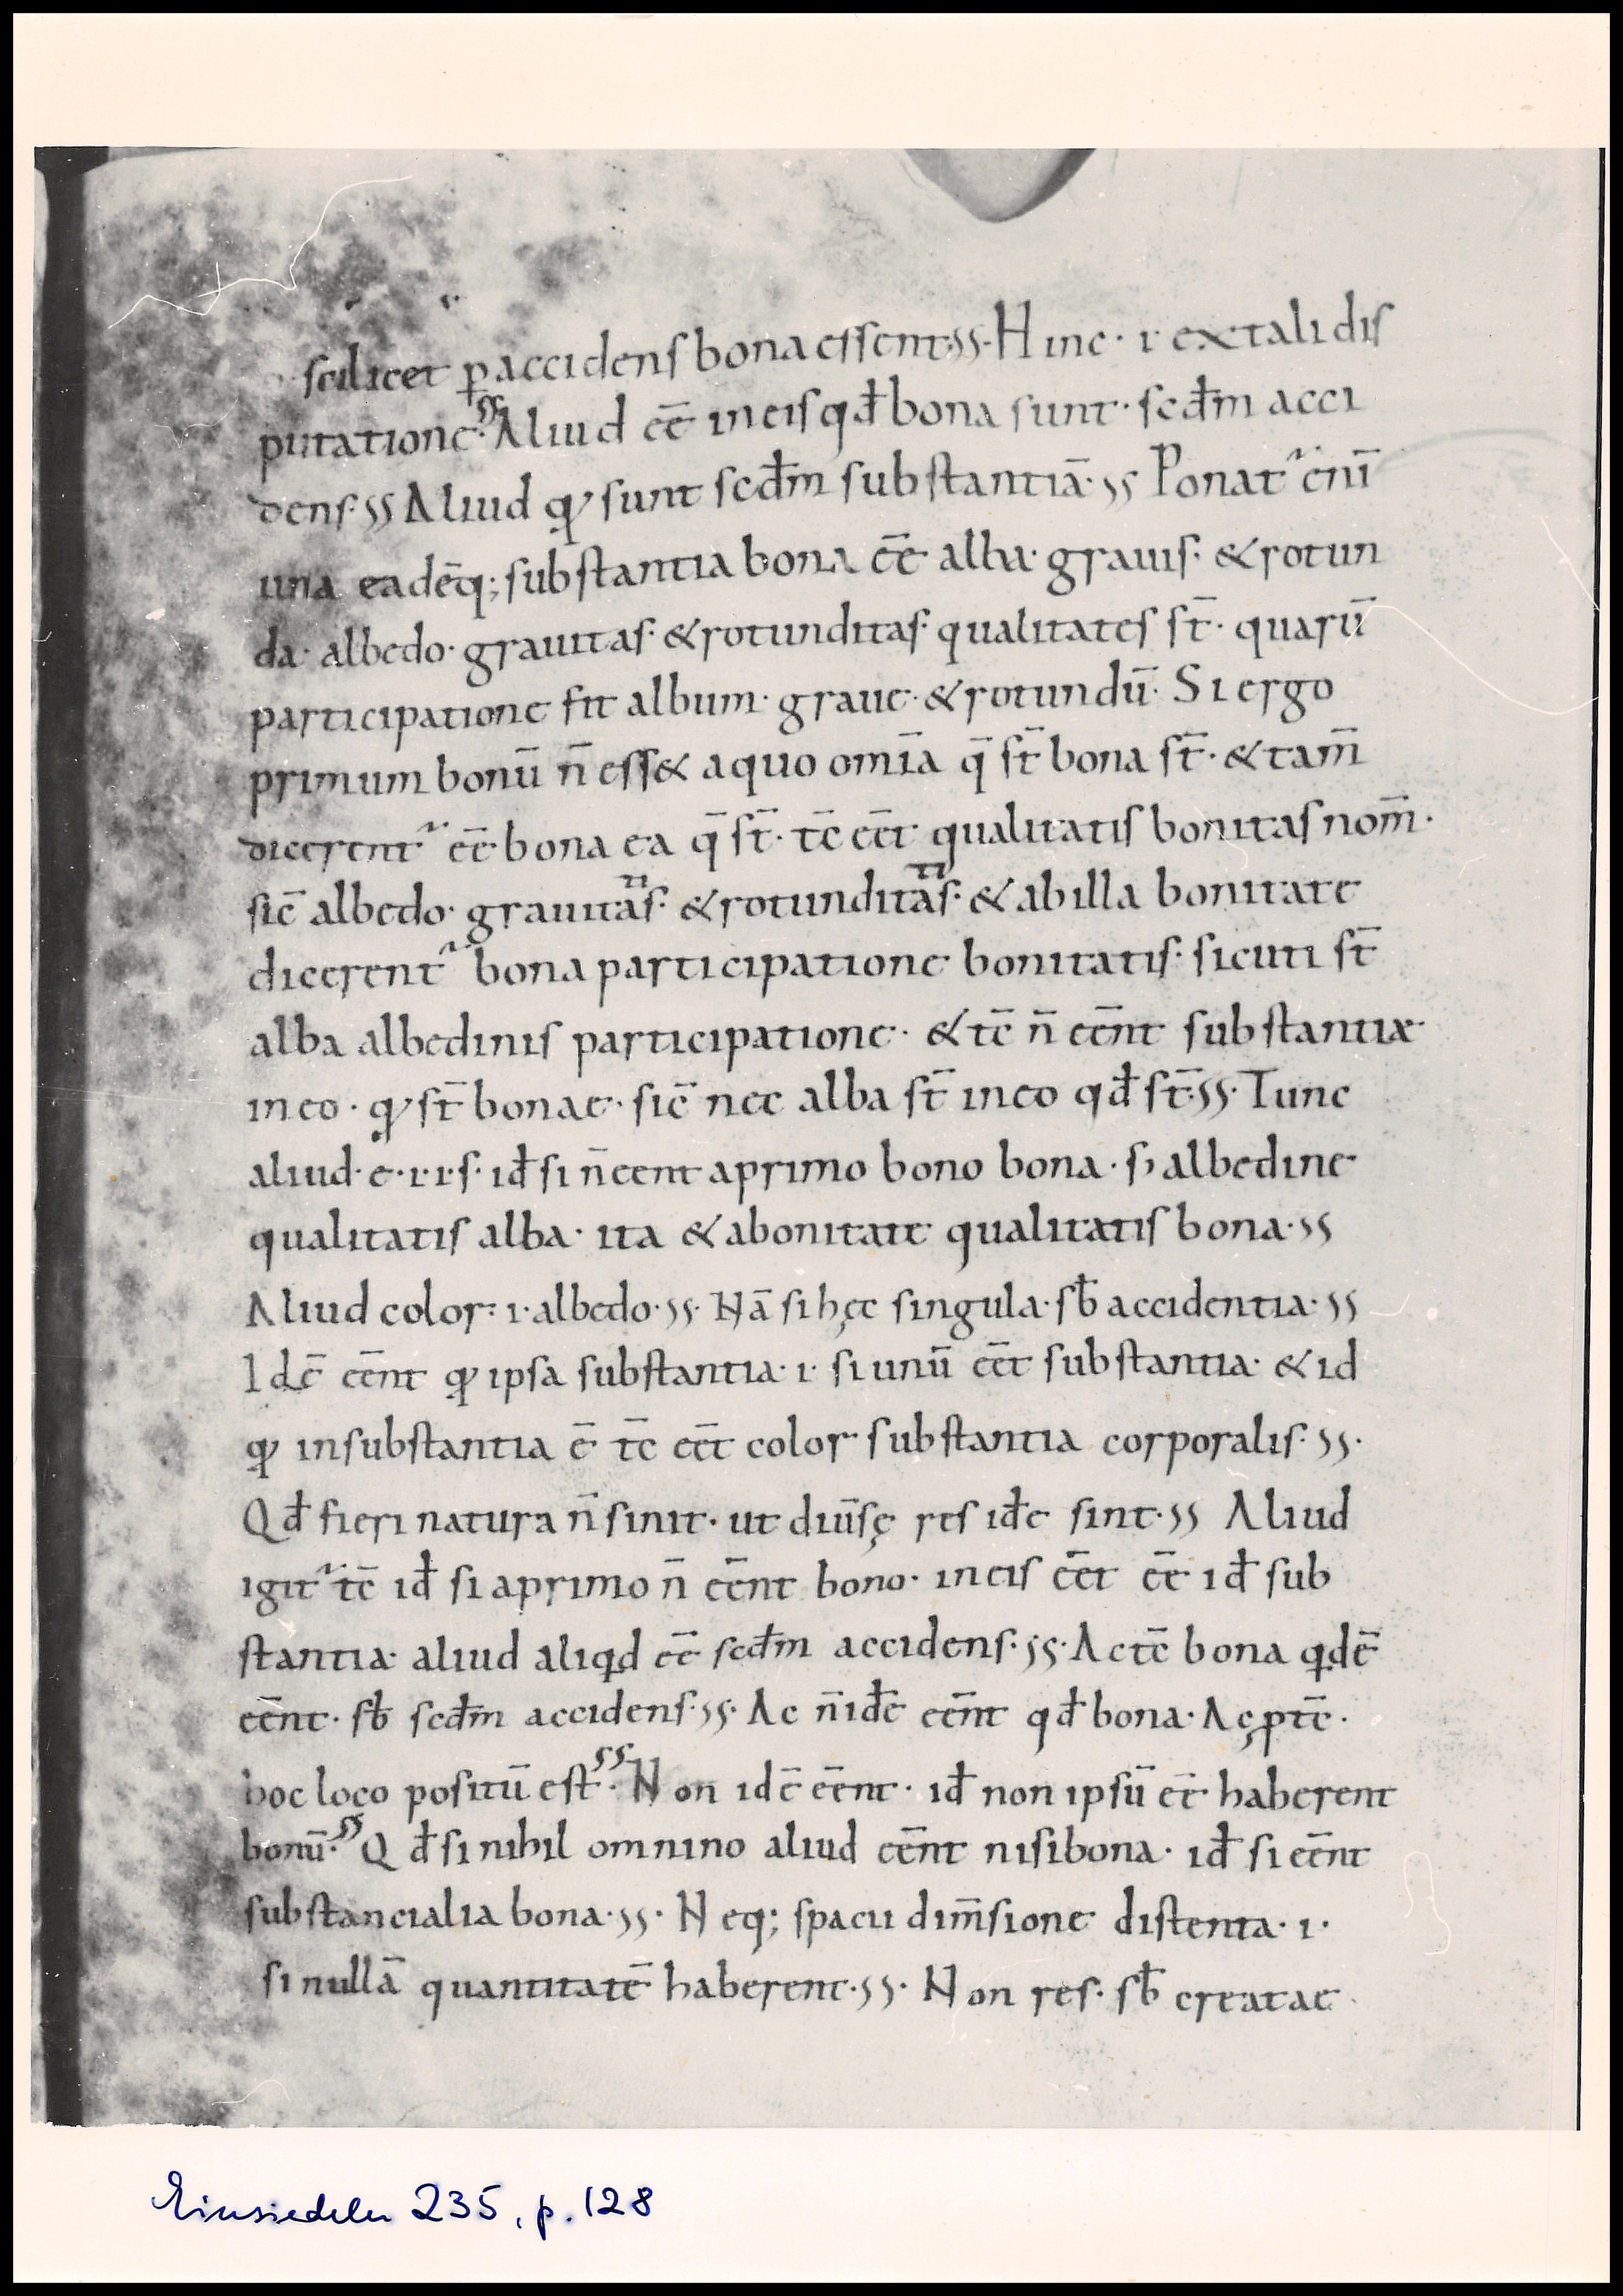 scilicet ꝑ accidens bona essent·ss· Hinc· i· ex tali dis
putatione·ss Aliud eē in eis qđ bona sunt· scđm acci
dens·ss Aliud qͥ sunt scđm substantiā·ss Ponatʳ eni̅
una eadēq; substantia bona eē alba· grauis· & rotun
da· albedo· grauitas· & rotunditas· qualitates st̄· quarū
participatione fit album· graue· & rotundū· Si ergo
primum bonū n̄ ess& a quo omīa q̄ st̄ bona st̄· & tam̄
dicerentʳ eē bona ea q̄ st̄· tc̄ eēt qualitatis bonitas nom̄·
sic̄ albedo· grauitas· & rotunditas· & ab illa bonitate
dicerentʳ bona participatione bonitatis· sicuti st̄
alba albedinis participatione· & tc̄ n̄ eēnt substantiæ
in eo· qͥ st̄ bonae· sic̄ nec alba st̄ in eo qđ st̄·ss· Tunc
aliud· e· i· i· s· iđ si n̄ eent a primo bono bona· s; albedine
qualitatis alba· ita & a bonitate qualitatis bona·ss
Aliud color· i· albedo·ss· Nā si hęc singula· sƀ accidentia·ss
Idē eēnt qͥ ipsa substantia· i· si unū eēt substantia· & id
qͥ in substantia ē tc̄ eēt color substantia corporalis·ss·
Qđ fieri natura n̄ sinit· ut diūsę res iđe sint·ss Aliud
igitʳ tc̄ iđ si a primo n̄ eēnt bono· in eis eēt eē iđ sub
stantia· aliud aliqͥd eē scđm accidens·ss· Ac tc̄ bona qͥdē
eēnt· sƀ scđm accidens·ss· Ac n̄ iđē eēnt qđ bona· Ac ꝓ tc̄·
hoc loco positū est·ss Non idē eēnt· iđ non ipsū eē haberent
bonū·ss Qđ si nihil omnino aliud eēnt nisi bona· iđ si eēnt
substancialia bona·ss· Neq; spacii dim̄sione distenta· i·
si nullā quantitatē haberent·ss· Non res· sƀ creatae·
Einsiedeln 235, p. 128